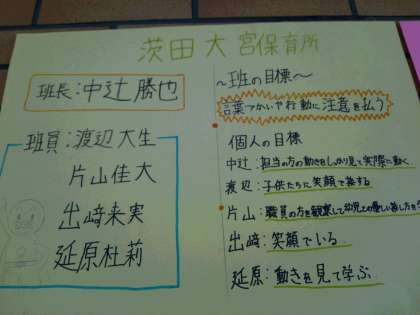 茨田大宮保育所
班長:中辻勝也
班員:渡辺大生
片山佳大
出﨑来実
延原杜莉
～班の目標～
言葉つかいや行動に注意を払う
個人の目標
中辻:担当の方の動きをしっかり見て実際に動く。
渡辺:子供たちに笑顔で接する
片山:職員の方を観察して幼児との優しい接し方を
出﨑:笑顔でいる。
延原:動きを見て学ぶ。